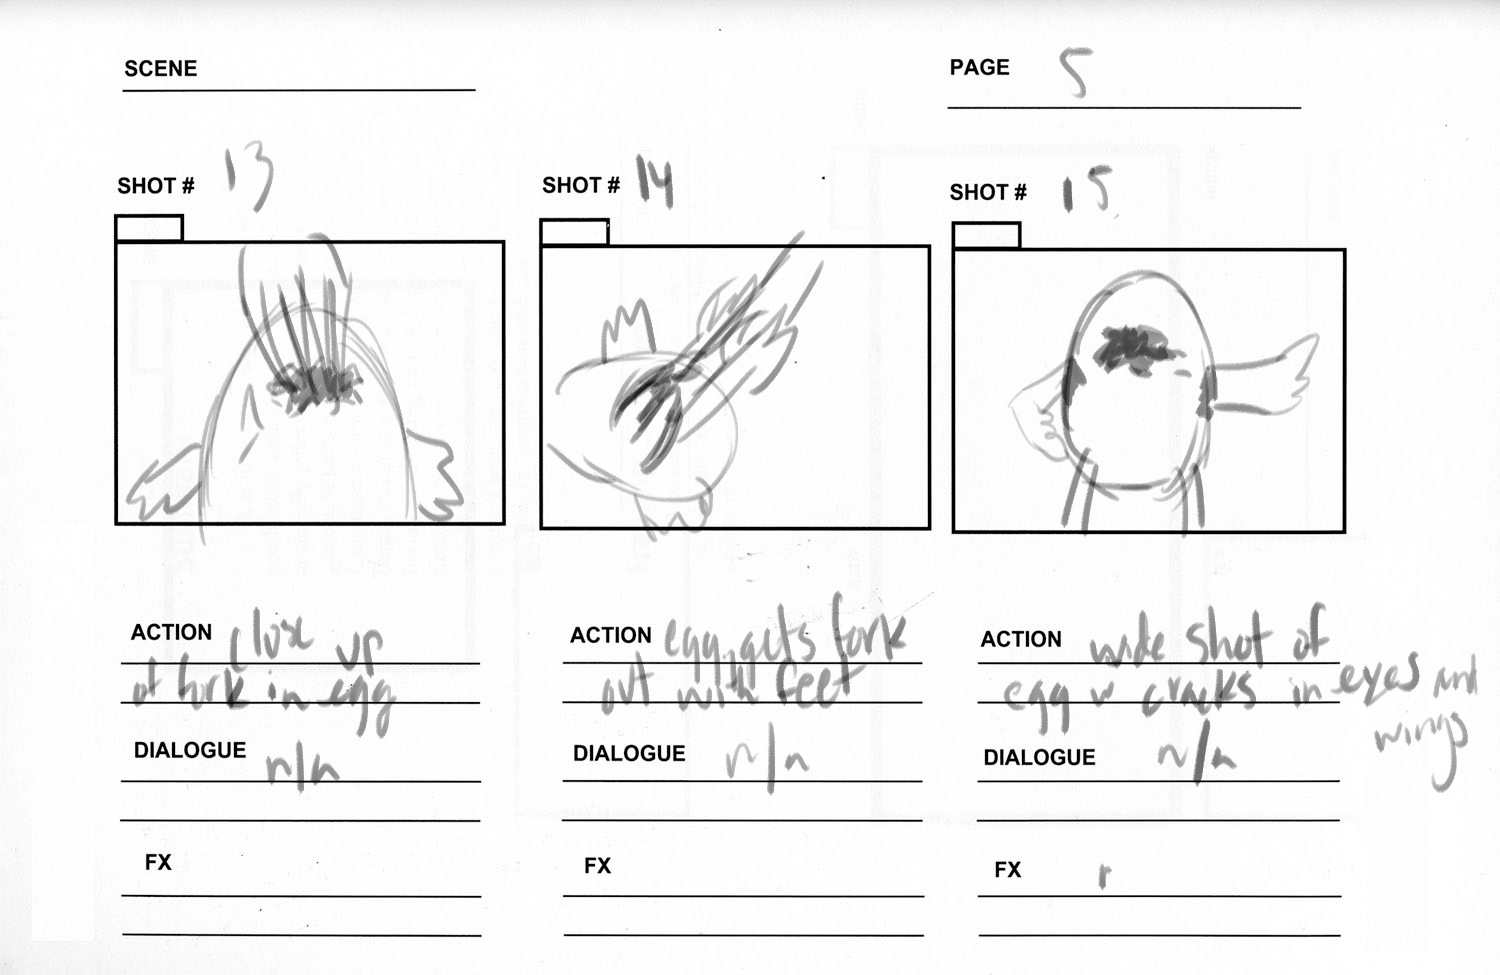 SCENE
PAGE 5
SHOT # 13
SHOT # 14
SHOT # 15
ACTION close up
of fork in egg
DIALOGUE n/a
FX
ACTION egg gets fork
out with feet
DIALOGUE n/a
FX
ACTION wide shot of
egg w cracks in eyes and
wings
DIALOGUE n/a
FX